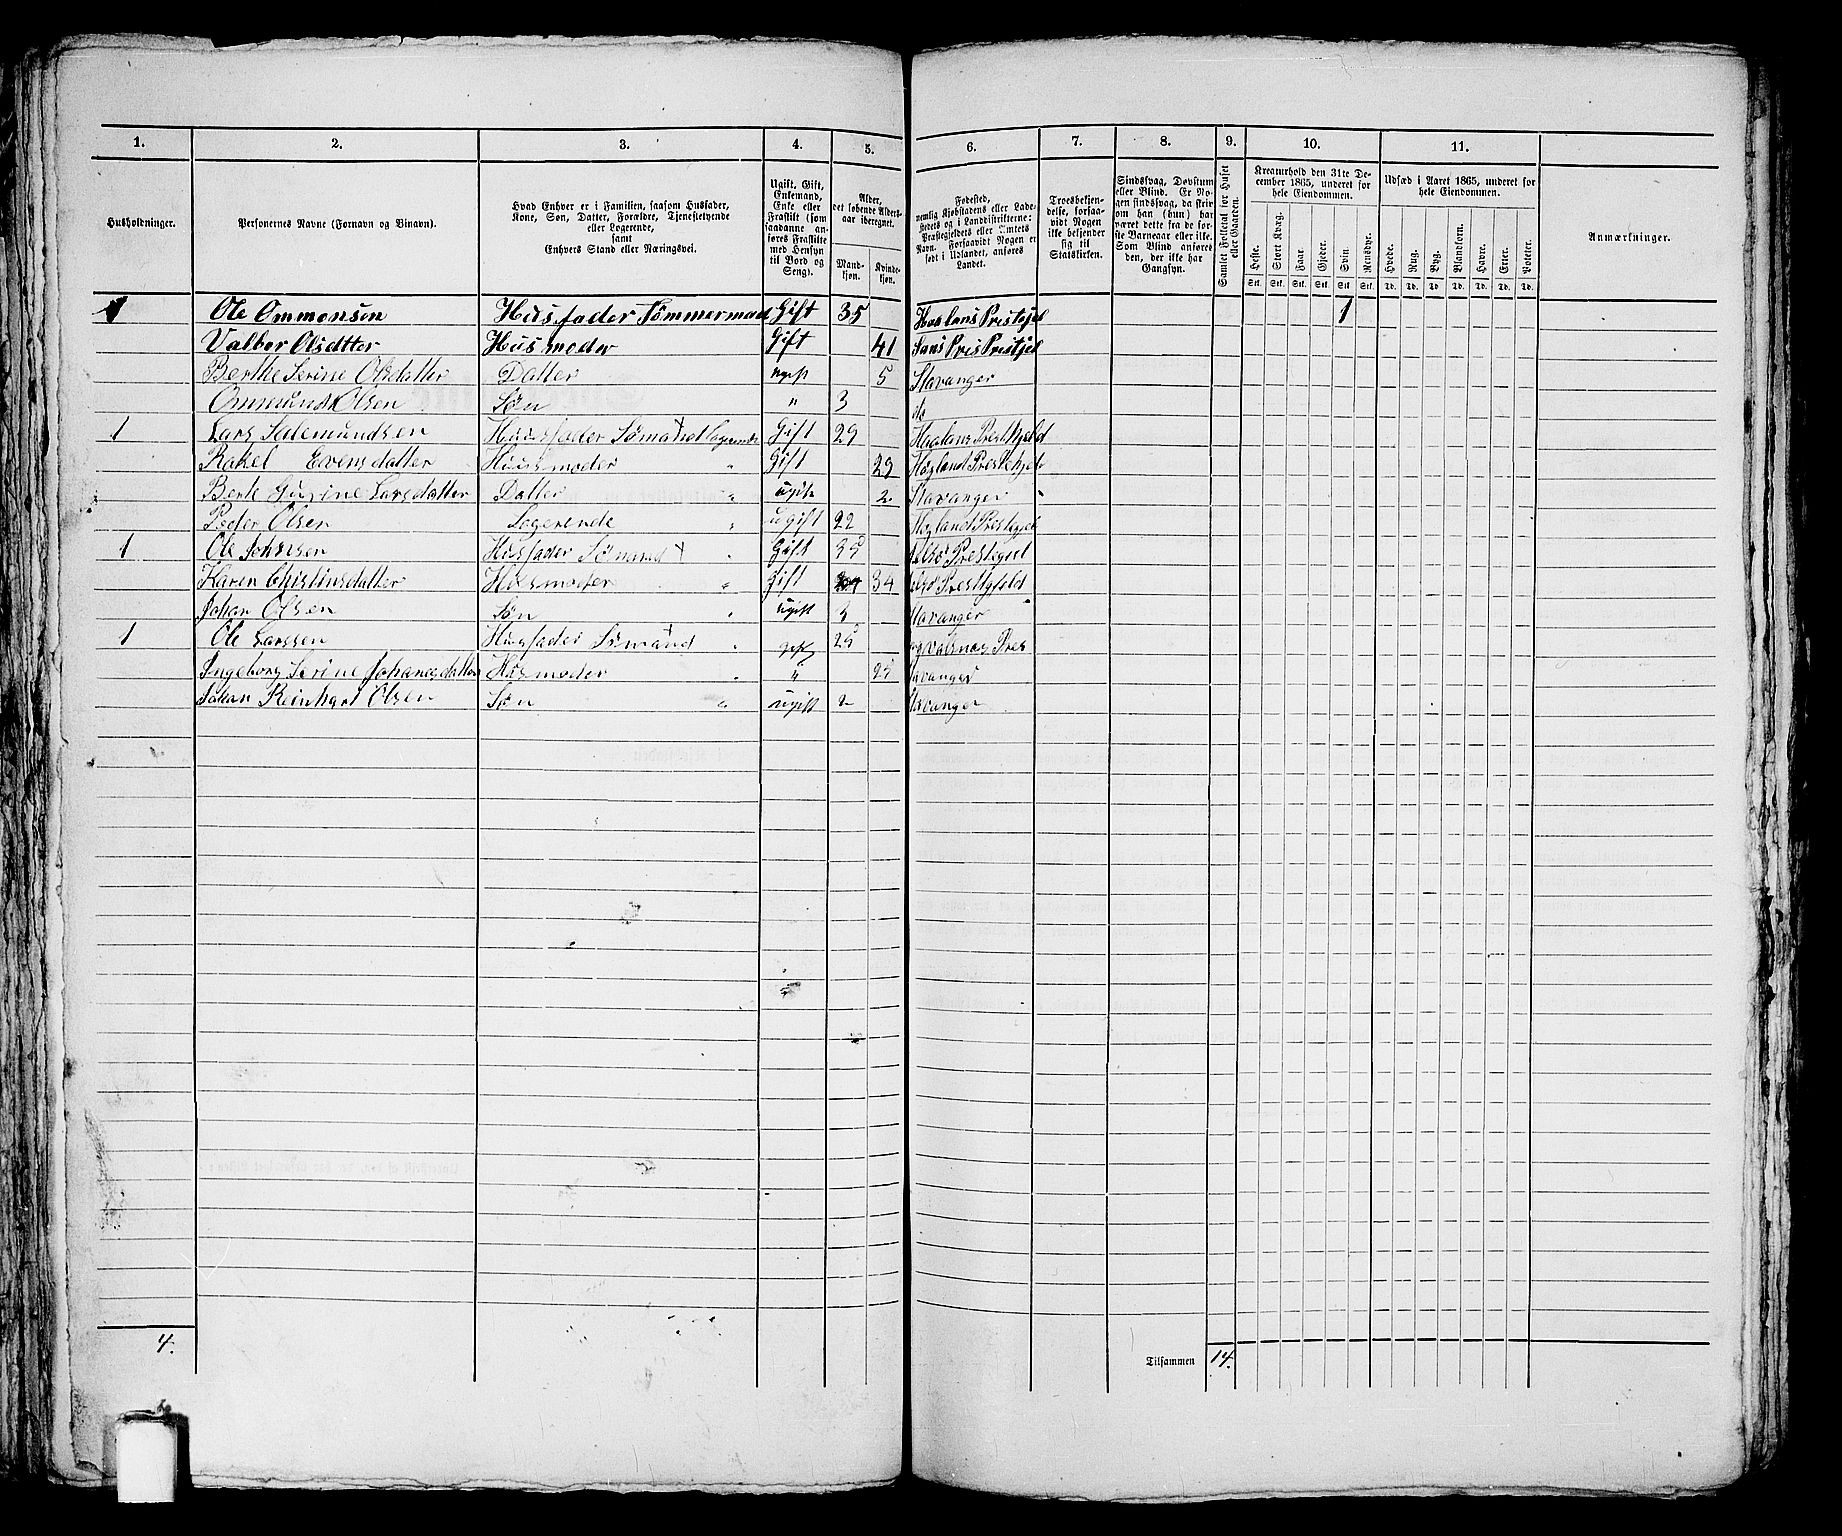 1. 2. 3. 4. 5. 6. 7. 8. 9. 10. 11.
Husholdninger.
Personernes Navne (Fornavn og Binavn).
Hvad Enhver er i Familien, saasom Husfader,
Kone, Søn, Datter, Forældre, Tjenestetyende
eller Logerende,
samt
Enhvers Stand eller Næringsvei.
Ugift, Gift,
Enkemand,
Enke eller
Fraskilt (som
saadanne an-
føres Fraskilte
med Hensyn
til Bord og
Seng).
Alder,
det løbende Alders-
aar iberegnet.
Mand-
kjøn.
Kvinde-
kjøn.
Fødested,
nemlig Kjøbstadens eller Lade-
stedets og i Landdistrikterne:
Præstegjeldets eller Amtets
Navn. Forsaavidt Nogen er
født i Udlandet, anføres
Landet.
Troesbekjen-
delse, forsaa-
vidt Nogen
ikke bekjender
sig til
Statskirken.
Sindssvag, Døvstum
eller Blind. Er No-
gen sindssvag, da skri-
ves om han (hun) har
været dette fra de før-
ste Barneaar eller ikke.
Som Blind anføres
den, der ikke har
Gangsyn.
Samlet Folketal for Huset
eller Gaarden.
Kreaturhold den 31te De-
cember 1865, underet for
hele Eiendommen.
Heste. Stort Kvæg. Faar. Gjeder. Svin. Rensdyr.
Stk. Stk. Stk. Stk. Stk. Stk.
Udsæd i Aaret 1865, underet for
hele Eiendommen.
Hvede. Rug. Byg. Blandkorn. Havre. Erter. Poteter.
Td. Td. Td. Td. Td. Td. Td.
Anmærkninger.
1 Ole Ommonsen Husfader Tømmermad Gift 35 Haalans Prestejel 1
Valbor Olsdtter Husmoder Gift 41 Prestjel
Berthe Serine Olsdatter Datter ugift 5 Stavanger
Ommund Olsen Søn " 3 do
1 Lars Salemundsen Husfader Sømand Logerende Gift 29 Haalans Prestkjeld
Rakel Evensdatter Husmoder " Gift 29 Høgland Prestekjel
Berte Gurine Larsdatter Datter " ugift 2 Stavanger
Peder Olsen Logerende " ugift 22 Høgland Prestegjel
1 Ole Johnsen Husfader Sømand " Gift 35
Karen Christinsdatter Husmoder " Gift 34
Johan Olsen Søn " ugift 3 Stavanger
1 Ole Larssen Husfader Sømand " gift 25 Pres
Ingeborg Serine Johanesdatter Husmoder " " 25 Stavanger
Johan Reinhart Olsen Søn " ugift 2 Stavanger
4.
Tilsammen 14.